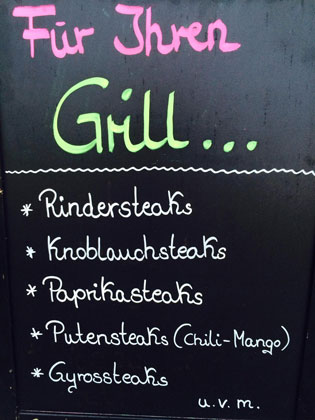 Für Ihren
Grill...
* Rindersteaks
* Knoblauchsteaks
* Paprikasteaks
* Putensteaks (Chili-Mango)
* Gyrossteaks
u.v.m.